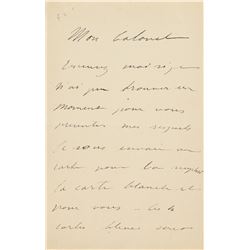 Mon Colonel
Excusez moi si je
n'ai pu trouver un
moment pour vous
présenter mes respects
Je vous envoie une
carte pour
La carte blanche est
pour vous — les
cartes bleues